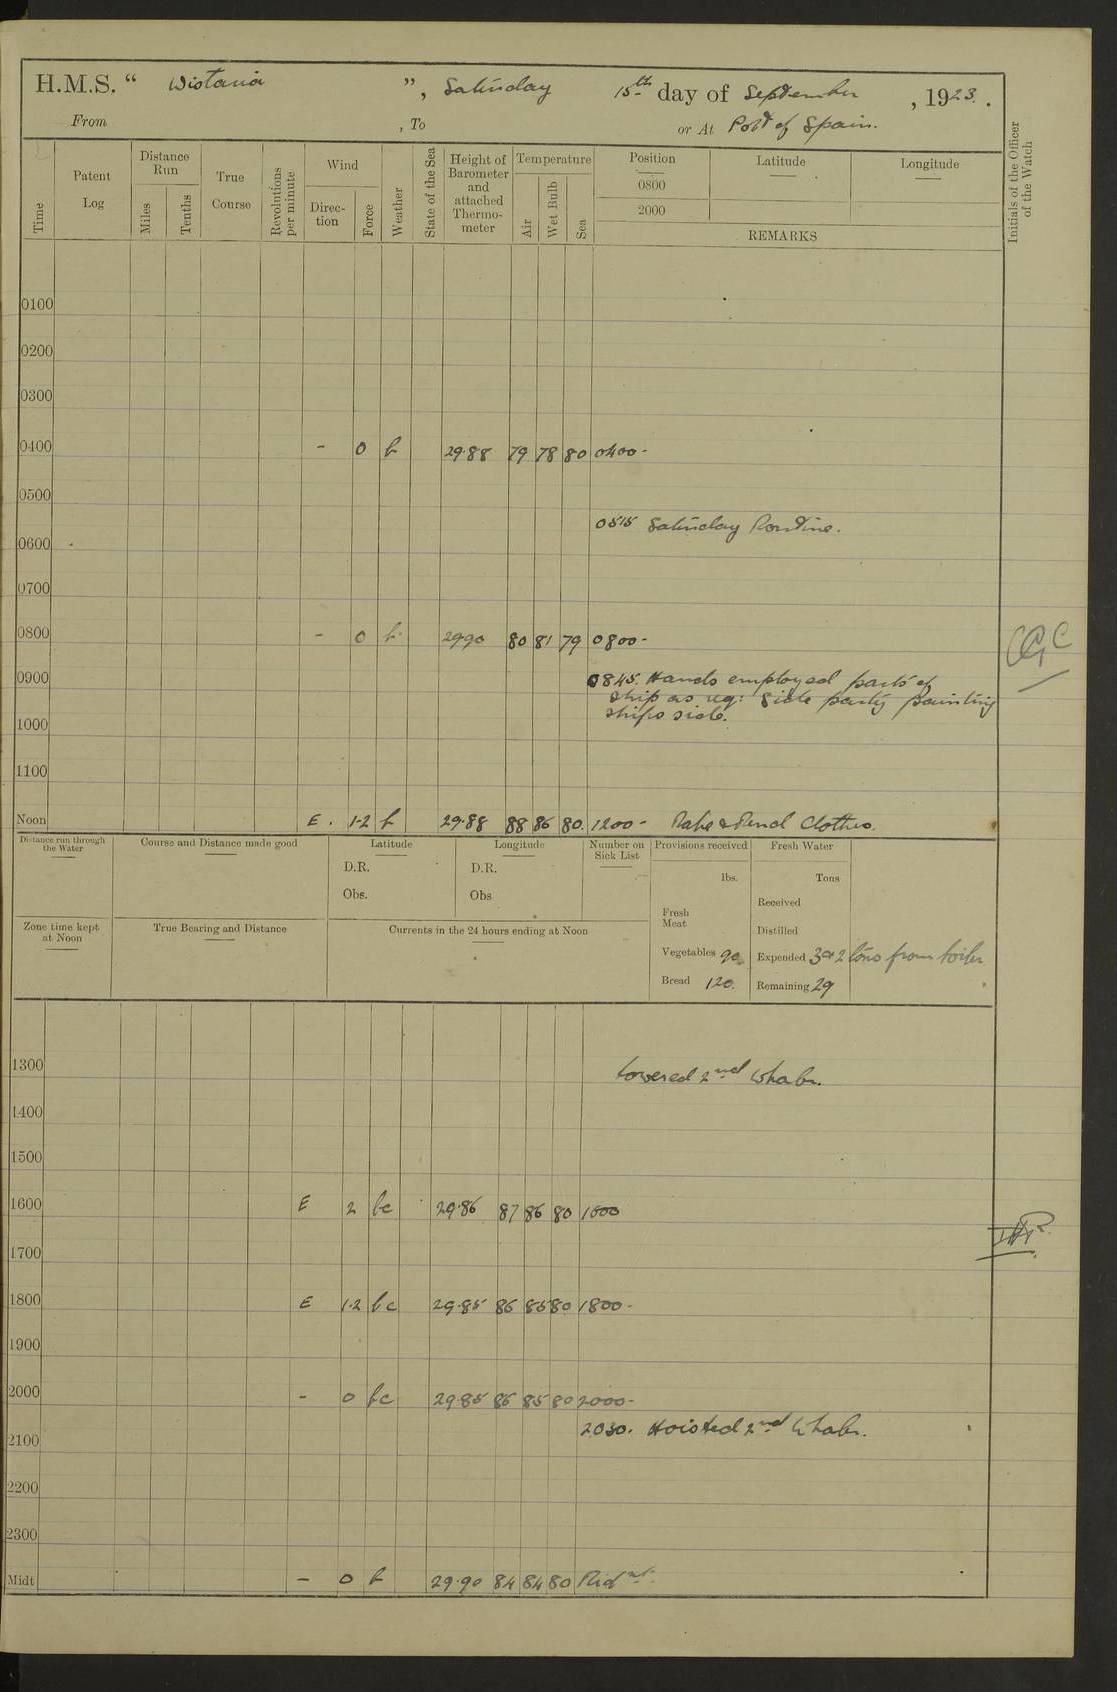 H.M.S. " Wistaria ", Saturday 15th day of September, 1923.
From , To or At Port of Spain.
Time
Patent Log
Distance Run
Miles
Tenths
True Course
Revolutions per minute
Wind
Direction
Force
Weather
State of the Sea
Height of Barometer and attached Thermometer
Temperature
Air
Wet Bulb
Sea
Position
Latitude
Longitude
0800
2000
REMARKS
Initials of the Officer of the Watch
0100
0200
0300
0400 - 0 b 29.88 79 78 80 0400-
0500
0515 Saturday Routine.
0600
0700
0800 - 0 b 29.90 80 81 79 0800-
0900 0845. Hands employed parts of
ship as req: Side party painting
ships side.
1000
1100
Noon E. 1-2 b 29.88 88 86 80. 1200- Make & Mend Clothes.
Distance run through the Water
Course and Distance made good
Latitude
D.R.
Obs.
Longitude
D.R.
Obs
Number on Sick List
Provisions received
lbs.
Fresh Meat
Vegetables 90
Bread 120.
Fresh Water
Tons
Received
Distilled
Expended 3 & 2 tons from boiler
Remaining 29
Zone time kept at Noon
True Bearing and Distance
Currents in the 24 hours ending at Noon
1300 Lowered 2nd Whaler.
1400
1500
1600 E 2 bc 29.86 87 86 80 1600
1700
1800 E 1-2 bc 29.85 86 85 80 1800-
1900
2000 - 0 bc 29.85 86 85 80 2000-
2030. Hoisted 2nd Whaler.
2100
2200
2300
Midt - 0 b 29.90 84 84 80 Midnt.